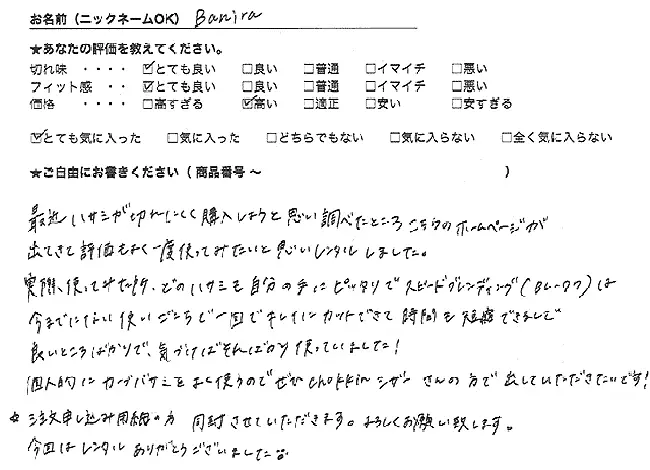 お名前（ニックネームOK） Banira
★あなたの評価を教えてください。
切れ味 ・・・・ ☑とても良い □良い □普通 □イマイチ □悪い
フィット感 ・・ ☑とても良い □良い □普通 □イマイチ □悪い
価格 ・・・・ □高すぎる ☑高い □適正 □安い □安すぎる
☑とても気に入った □気に入った □どちらでもない □気に入らない □全く気に入らない
★ご自由にお書きください（商品番号～ ）
最近ハサミが切れにくく購入しようと思い調べたところこちらのホームページが
出てきて評価もよく一度使ってみたいと思いレンタルしました。
実際、使ってみた所、どのハサミも自分の手にピッタリでスピードブレンディング
今までにない使いごこちで一回でキレイにカットできて時間も短縮できまして
良いところばかりで、気づけばそればかり使っていました！
個人的にカーブバサミをよく使うのでぜひchokkinシザーさんの方で出していただきたいです！
☆ 注文申し込み用紙の方 同封させていただきます。よろしくお願い致します。
今回はレンタルありがとうございました